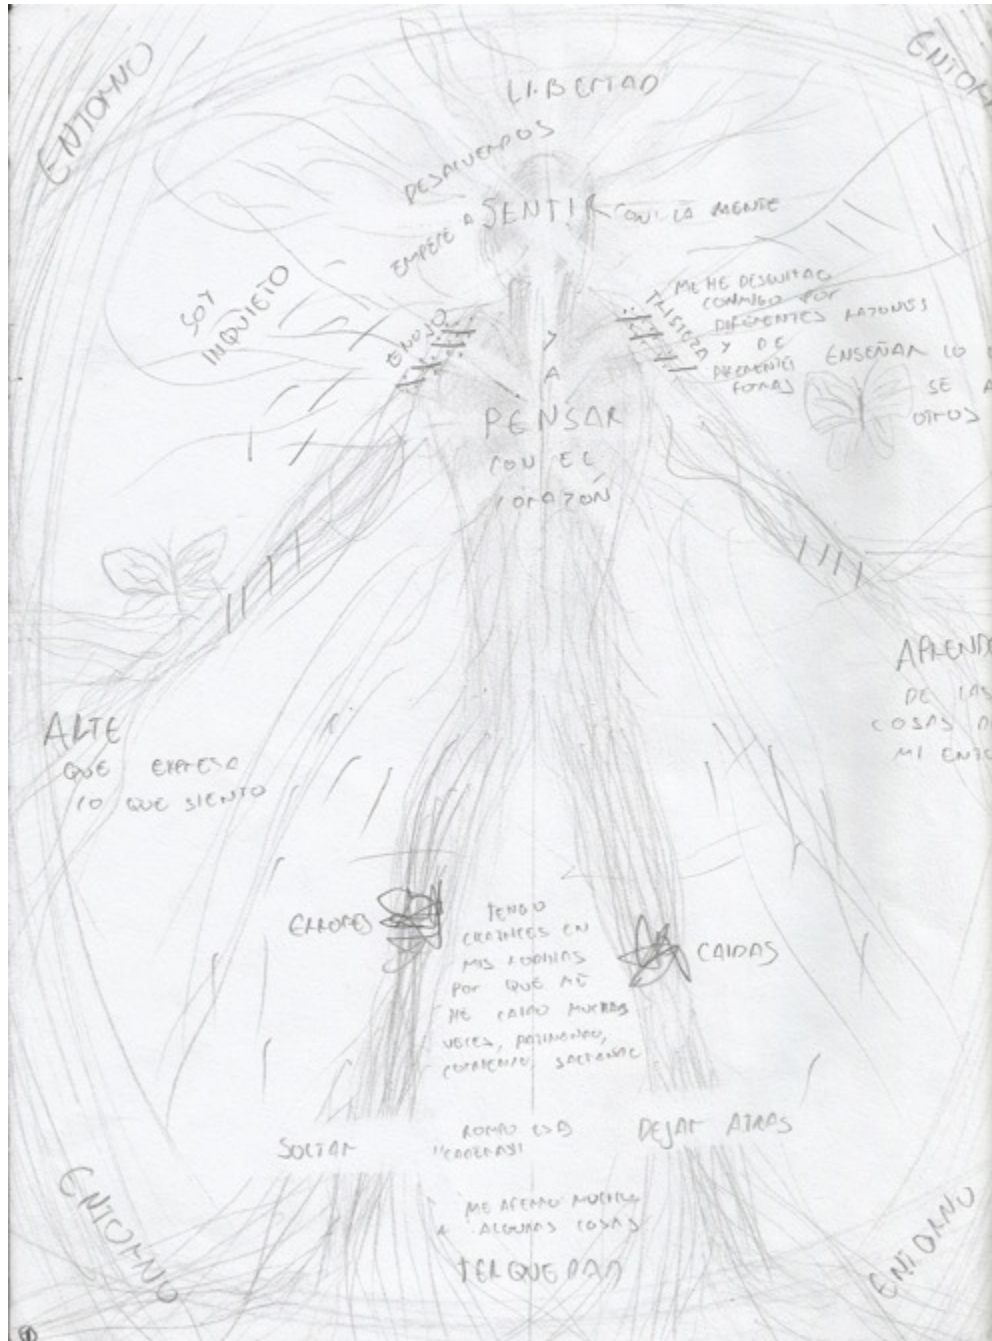 ENTORNO
ENTOR
LIBERTAD
DESACUERDOS
EMPECE A SENTIR CON LA MENTE
SOY
INQUIETO
ENOJO
TRISTEZA
ME HE DESQUITADO
CONMIGO POR
DIFERENTES RAZONES
Y DE
DIFERENTES
FORMAS
ENSEÑAR LO
SE A
OTROS
Y
A
PENSAR
CON EL
CORAZÓN
ARTE
QUE EXPRESA
LO QUE SIENTO
APREND
DE LAS
COSAS D
MI ENTO
ERRORES
CAIDAS
TENGO
EN
MIS RODILLAS
POR QUE ME
HE CAIDO MUCHAS
VECES, PATINANDO,
CORRIENDO, SALTANDO
SOLTAR
ROMPO ESAS
"CADENAS"
DEJAR ATRAS
ME AFERRO MUCHO
A ALGUNAS COSAS
TERQUEDAD
ENTORNO
ENTORNO